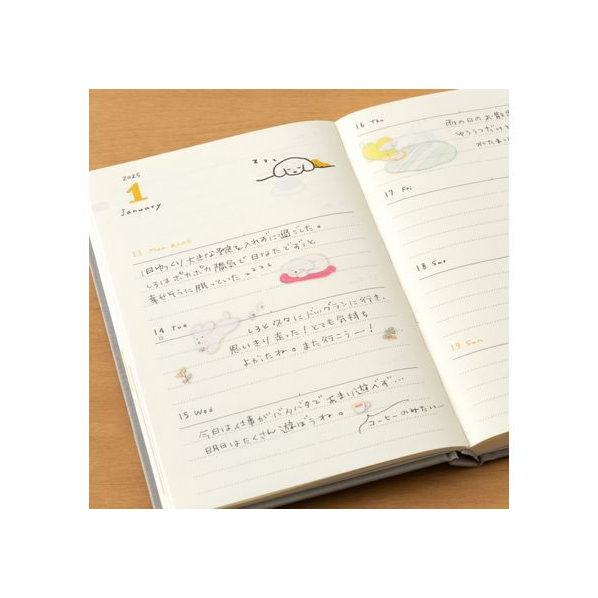 2025
1
January
zzz
13 Mon
1日ゆっくり大きな予定を入れずに過ごした。
しろはポカポカ陽気で日なたでずっと
幸せそうに眠っていたzzzz
14 Tue
しろと久々にドッグランに行き、
思いきり走った!とても気持ち
よかったね。また行こうー!
15 Wed
今日は仕事がバタバタであまり遊べず…
明日はたくさん遊ぼうね。
コーヒーのみたい…
16 Thu
雨の日のお散
ゆううつだけど
17 Fri
18 Sat
19 Sun